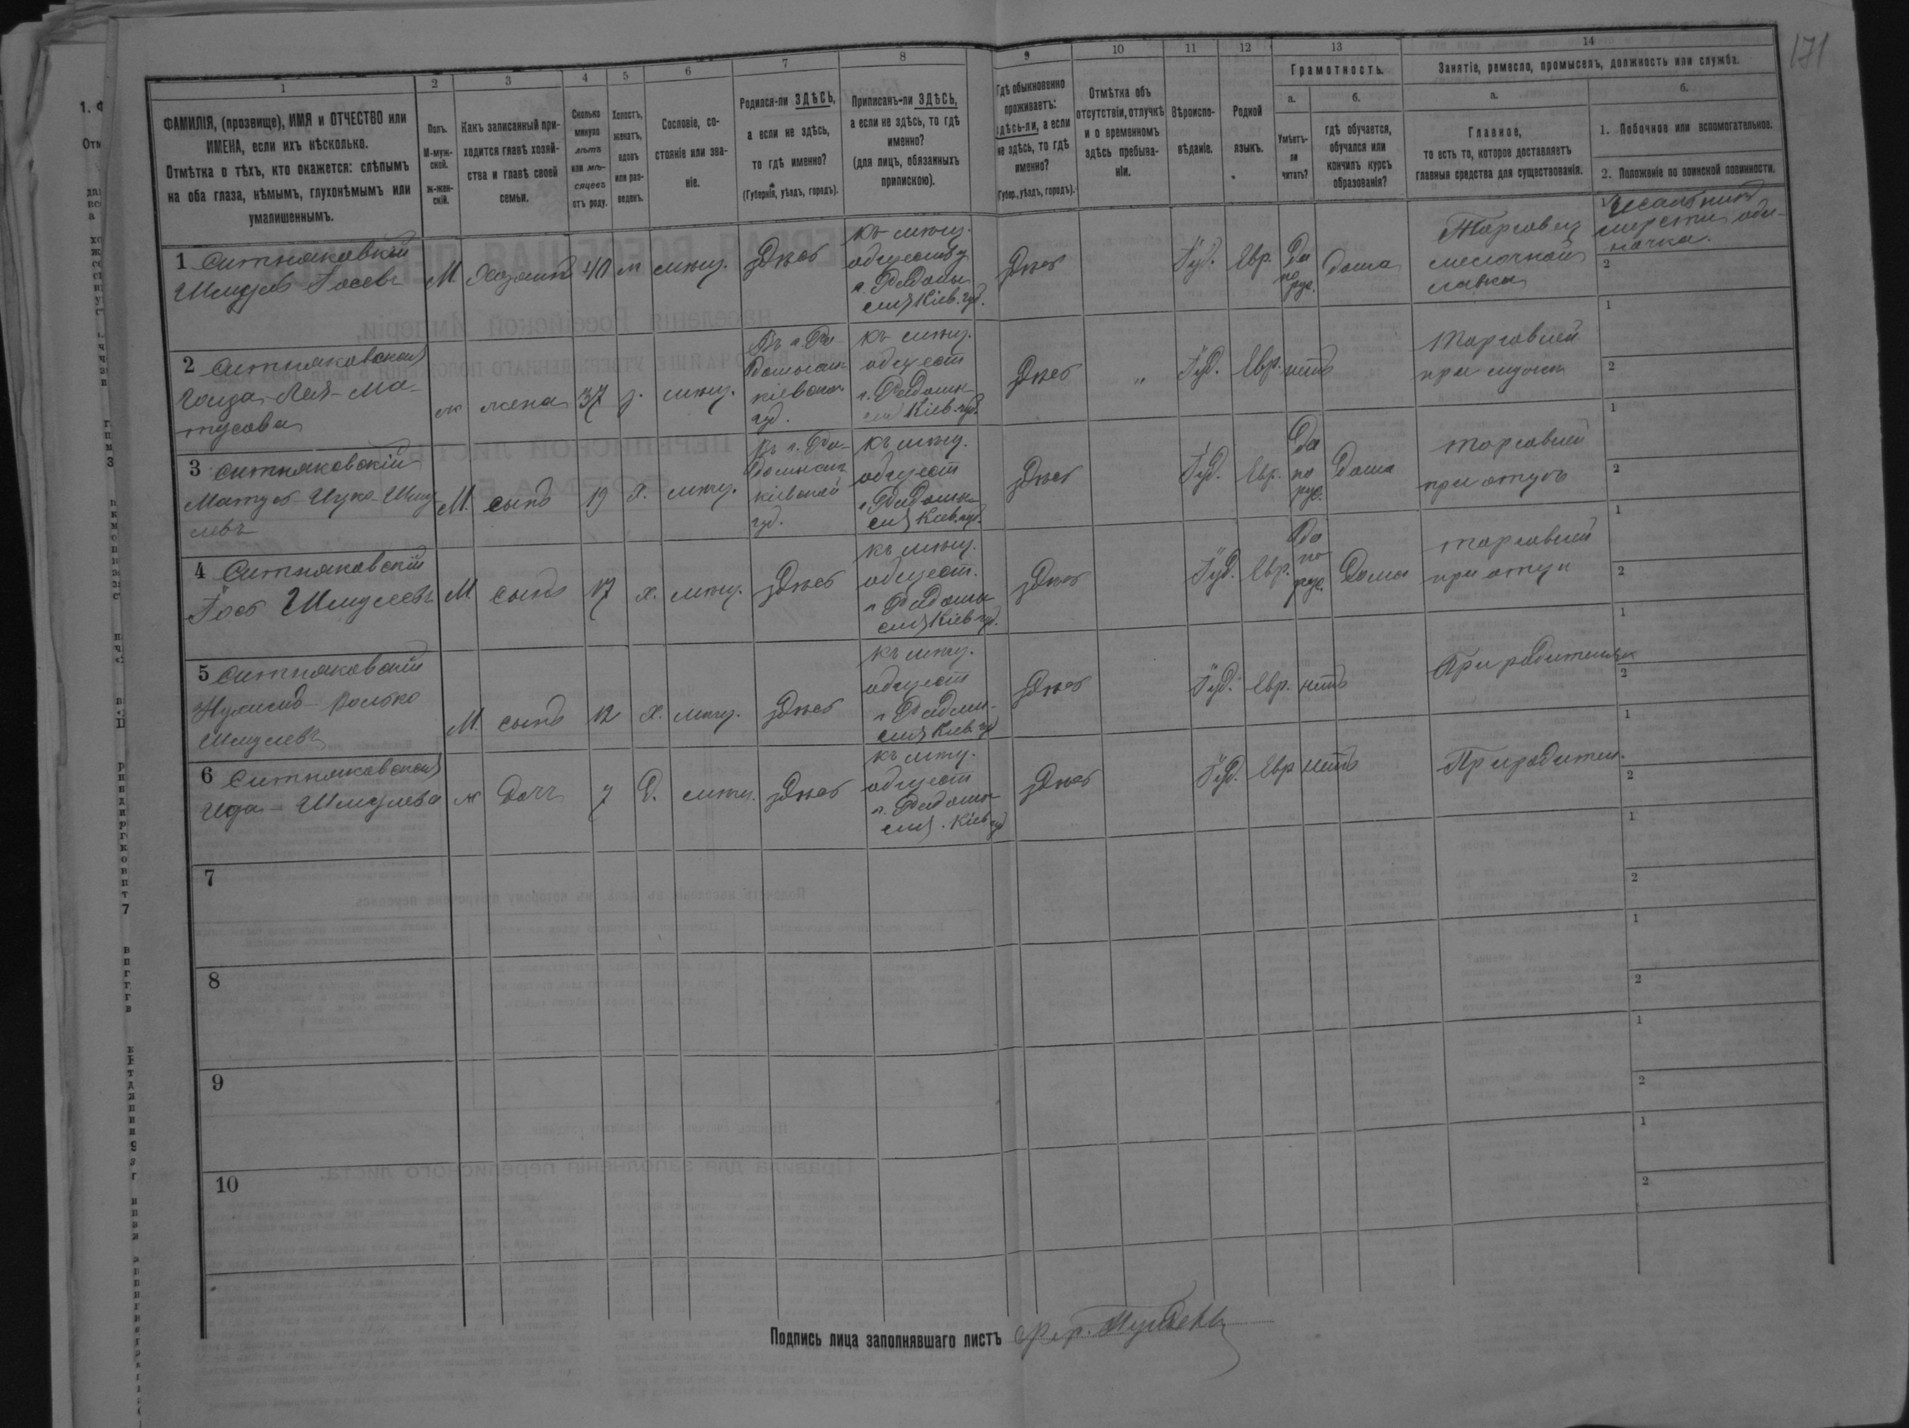 171
1 2 3 4 5 6 7 8 9 10 11 12 13 14
ФАМИЛІЯ, (прозвище), ИМЯ и ОТЧЕСТВО или
ИМЕНА, если ихъ нѣсколько.
Отмѣтка о тѣхъ, кто окажется: слѣпымъ
на оба глаза, нѣмымъ, глухонѣмымъ или
умалишеннымъ.
Полъ.
М-муж-
ской.
ж-жен-
скій.
Какъ записанный при-
ходится главѣ хозяй-
ства и главѣ своей
семьи.
Сколько
минуло
лѣтъ
или мѣ-
сяцевъ
отъ роду.
Холостъ,
женатъ,
вдовъ
или раз-
веденъ.
Сословіе, со-
стояніе или зва-
ніе.
Родился-ли ЗДѢСЬ,
а если не здѣсь,
то гдѣ именно?
(Губернія, уѣздъ, городъ).
Приписанъ-ли ЗДѢСЬ,
а если не здѣсь, то гдѣ
именно?
(для лицъ, обязанныхъ
припискою).
Гдѣ обыкновенно
проживаетъ:
здѣсь-ли, а если
не здѣсь, то гдѣ
именно?
(Губер., уѣздъ, городъ).
Отмѣтка объ
отсутствіи, отлучкѣ
и о временномъ
здѣсь пребыва-
ніи.
Вѣроиспо-
вѣданіе.
Родной
языкъ.
Грамотность.
а.
Умѣетъ-
ли
читать?
б.
гдѣ обучается,
обучался или
кончилъ курсъ
образованія?
Занятіе, ремесло, промыселъ, должность или служба.
а.
Главное,
то есть то, которое доставляетъ
главныя средства для существованія.
б.
1. Побочное или вспомогательное.
2. Положеніе по воинской повинности.
1 Ситняковскій
Шмуль Іосевъ
М. Хозяинъ 40 ж мѣщ. здѣсь
къ мѣщ.
обществу
г. Радомы-
сля Кіев. губ.
здѣсь Іуд. Евр. Да
по
рус. дома
Торговец
мелочной
лавки
2
2 Ситняковская
Лея-Ма-
тусова
ж жена 37 з. мѣщ.
Въ г. Ра-
домыслѣ
кіевской
губ.
къ мѣщ.
общест
г. Радомы-
сля Кіев. губ.
здѣсь " Іуд. Евр. нѣтъ
торговлей
при мужѣ
1
2
3 Ситняковскій
Матусъ-Ицко Шму
левъ
М. сынъ 19 х. мѣщ.
Въ г. Ра-
домыслѣ
кіевской
губ.
къ мѣщ.
общест
г. Радомы-
сля Кіев. губ.
здѣсь Іуд. Евр. Да
по
рус. Дома
торговлей
при отцѣ
1
2
4 Ситняковскій
Іосъ Шмулевъ
М сынъ 17 х. мѣщ. здѣсь
къ мѣщ.
общест.
г. Радомы-
сля Кіев. губ.
здѣсь Іуд. Евр. Да
по
рус. Дома
торговлей
при отцѣ
1
2
5 Ситняковскій
Шмулевъ
М. сынъ 12 х. мѣщ. здѣсь
къ мѣщ.
общест
г. Радомы-
сля Кіев. губ
здѣсь Іуд. Евр. нѣтъ
При родителяхъ
1
2
6 Ситняковская
Ида-Шмулева
ж Дочь 7 д. мѣщ. здѣсь
къ мѣщ.
общест
г. Радомы-
сля Кіев губ
здѣсь Іуд. Евр нѣтъ
При родител.
1
2
7
1
2
8
1
2
9
1
2
10
1
2
Подпись лица заполнявшаго листъ